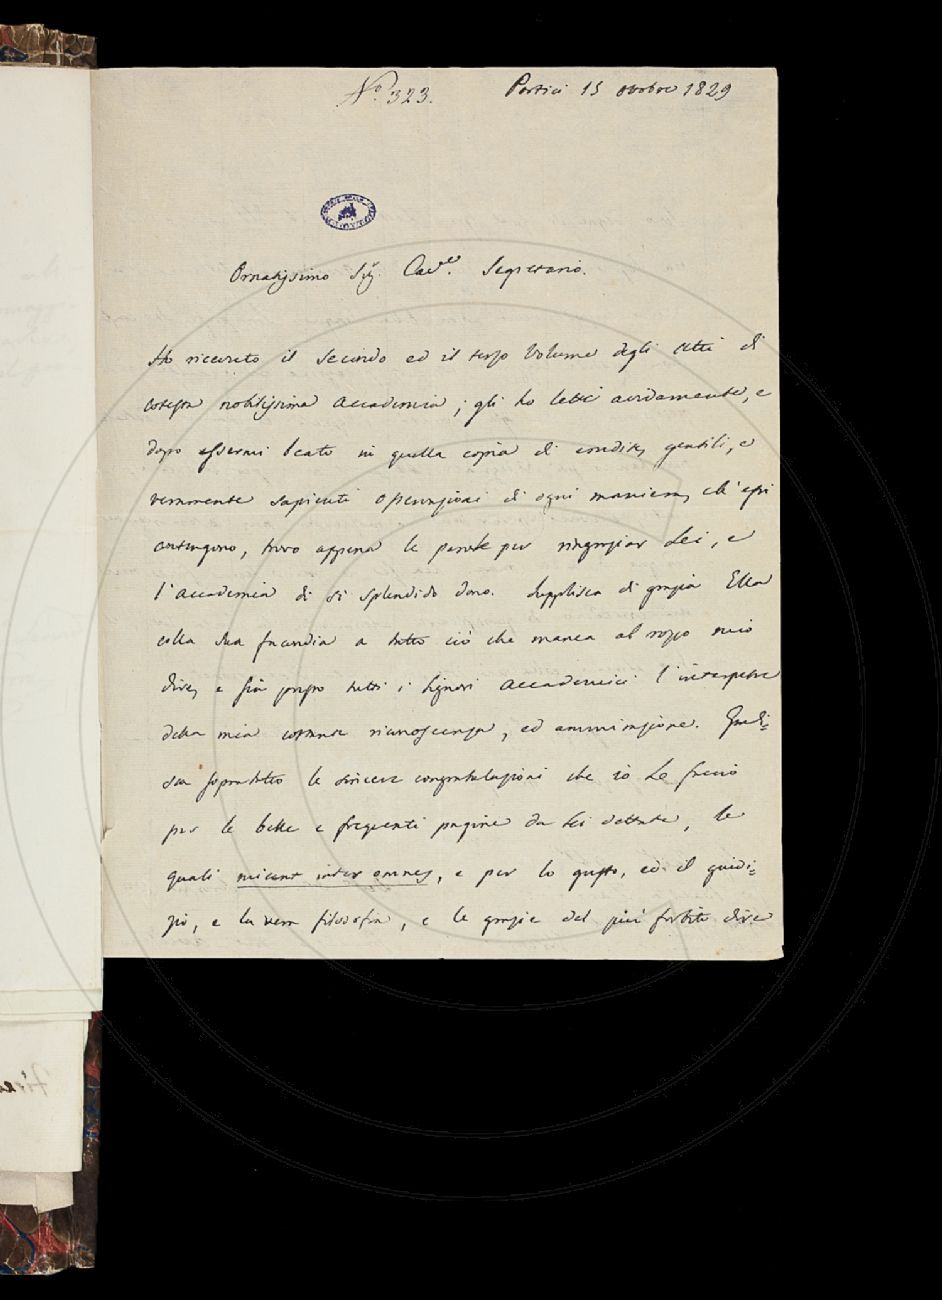 N.º 323.
Portici 15 ottobre 1829
Ornatissimo Sig. Cav.re Segretario.
Ho ricevuto il secondo ed il terzo Volume degli Atti di
cotesta nobilissima Accademia; gli ho letti avidamente, e
dopo essermi beato in quella copia di erudite, gentili, e
veramente sapienti osservazioni di ogni maniera, ch'essi
contengono, trovo appena le parole per ringraziar Lei, e
l'Accademia di sì splendido dono. Supplisca di grazia Ella
colla Sua facundia a tutto ciò che manca al rozzo mio
dire, e sia presso tutti i Signori Accademici l'interprete
della mia costante riconoscenza, ed ammirazione. Gradi=
sca sopratutto le sincere congratulazioni che io Le faccio
per le belle e frequenti pagine da Lei dettate, le
quali micant inter omnes, e per lo gusto, ed il giudi=
zio, e la vera filosofia, e le grazie del più forbito dire